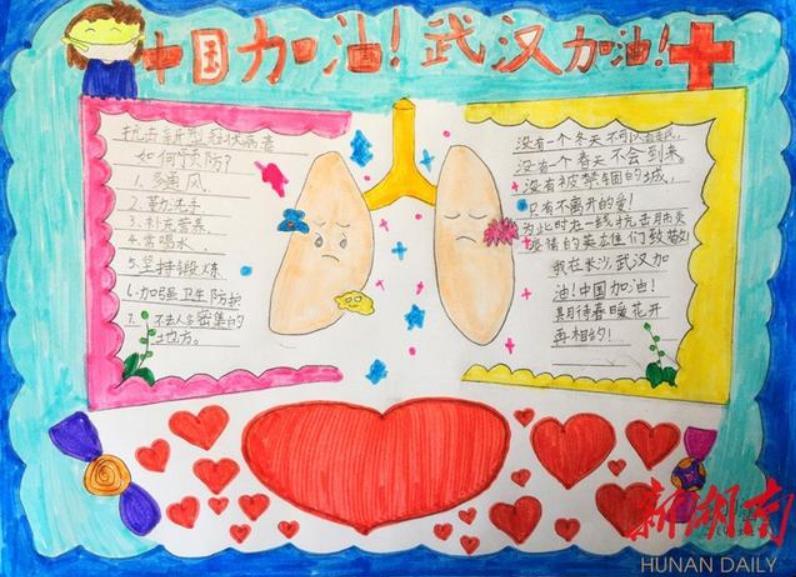 中国加油！武汉加油！
抗击新型冠状病毒
如何预防？
1、多通风、
2、勤洗手
3、补充营养、
4、常喝水、
5、坚持锻炼
6、加强卫生防护
7、不去人多密集的
地方。
没有一个冬天不可以逾越，
没有一个春天不会到来。
没有被禁锢的城，
只有不离开的爱！
为此时在一线抗击肺炎
疫情的英雄们致敬！
我在长沙，武汉加
油！中国加油！
期待春暖花开
再相约！
新湖南
HUNAN DAILY